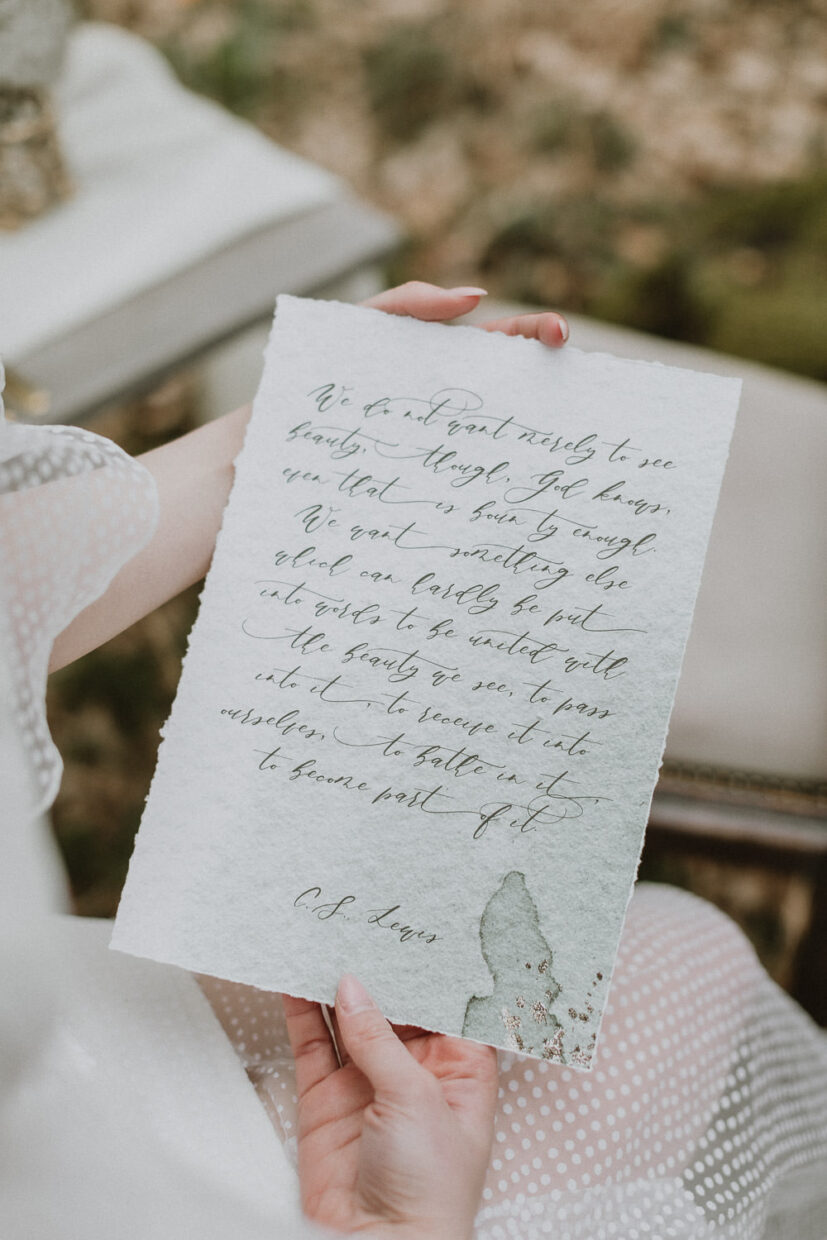 We do not want merely to see
beauty, though, God knows,
even that is bounty enough.
We want something else
which can hardly be put
into words to be united with
the beauty we see, to pass
into it, to receive it into
ourselves, to bathe in it,
to become part of it.
C.S. Lewis